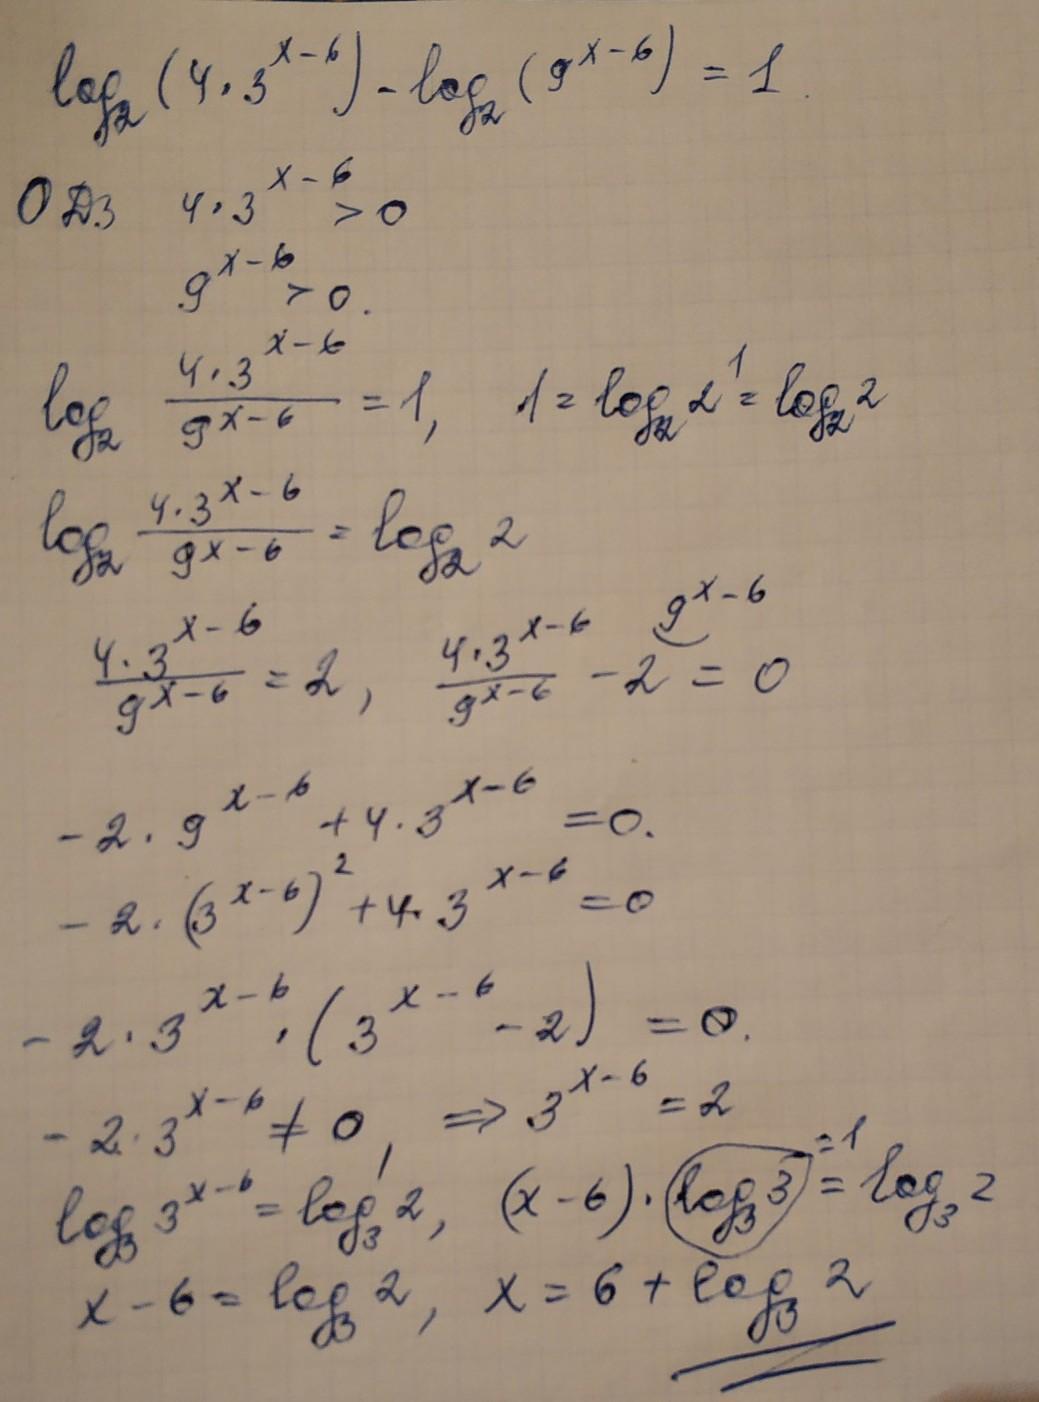 log₂(4·3^(x-6)) - log₂(9^(x-6)) = 1.
ОДЗ 4·3^(x-6) > 0
9^(x-6) > 0.
log₂ (4·3^(x-6))/(9^(x-6)) = 1, 1 = log₂ 2¹ = log₂ 2
log₂ (4·3^(x-6))/(9^(x-6)) = log₂ 2
(4·3^(x-6))/(9^(x-6)) = 2, (4·3^(x-6))/(9^(x-6)) - 2 = 0 9^(x-6)
-2·9^(x-6) + 4·3^(x-6) = 0.
-2·(3^(x-6))² + 4·3^(x-6) = 0
-2·3^(x-6)·(3^(x-6) - 2) = 0.
-2·3^(x-6) ≠ 0, ⇒ 3^(x-6) = 2
log₃ 3^(x-6) = log₃ 2, (x-6)·log₃ 3 = log₃ 2 =1
x-6 = log₃ 2, x = 6 + log₃ 2